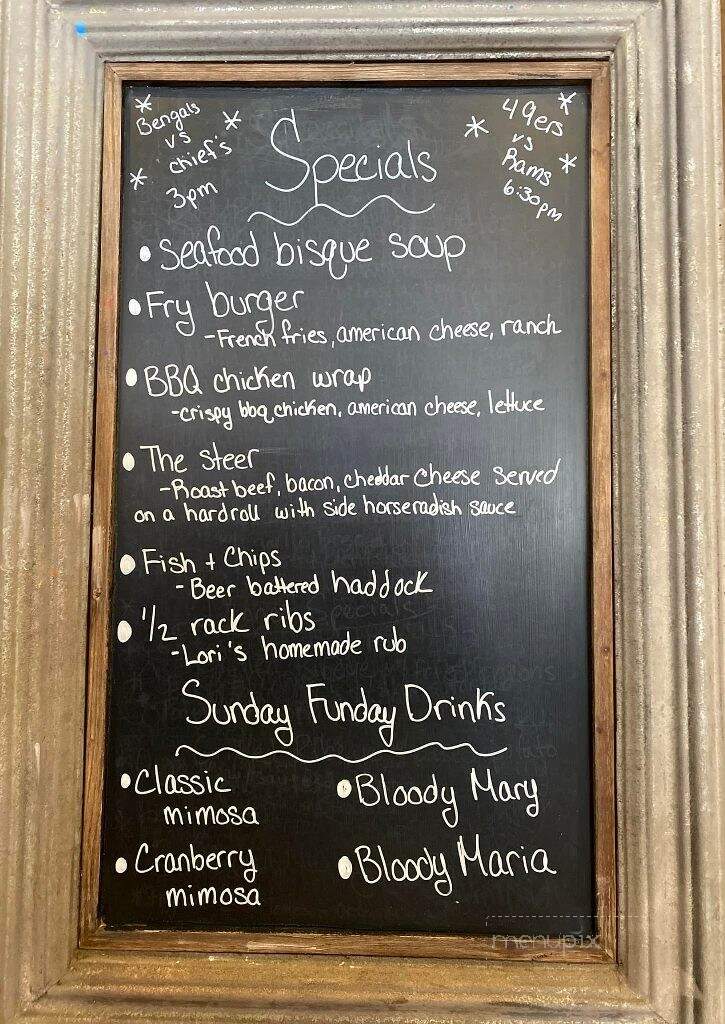 Bengals
vs
chief's
3pm
49ers
vs
Rams
6:30pm
Specials
• Seafood bisque soup
• Fry burger
-French fries, american cheese, ranch
• BBQ chicken wrap
-crispy bbq chicken, american cheese, lettuce
• The steer
-Roast beef, bacon, cheddar cheese served
on a hardroll with side horseradish sauce
• Fish + Chips
- Beer battered haddock
• 1/2 rack ribs
-Lori's homemade rub
Sunday Funday Drinks
• Classic
mimosa
• Bloody Mary
• Cranberry
mimosa
• Bloody Maria
menupix